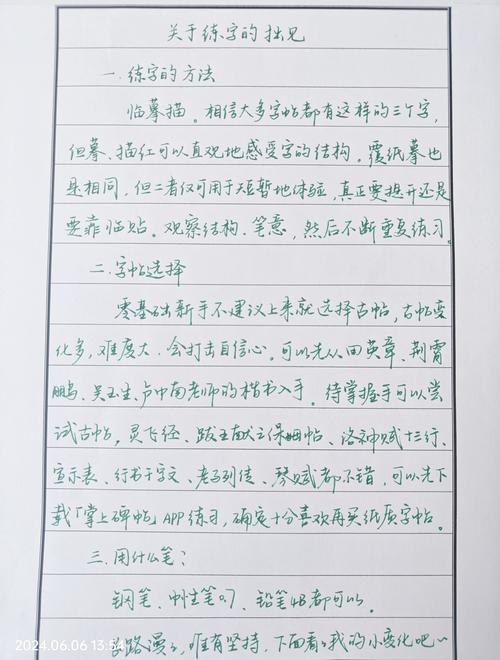 关于练字的拙见
一.练字的方法
临摹描。相信大多字帖都有这样的三个字,
但摹、描红可以直观地感受字的结构。覆纸摹也
是相同。但二者仅可用于短暂地体验,真正要提升还是
要靠临贴。观察结构、笔意,然后不断重复练习。
二.字帖选择
零基础新手不建议上来就选择古帖,古帖变
化多,难度大.会打击自信心。可以先从田英章、荆霄
鹏、吴玉生、卢中南老师的楷书入手。待掌握手可以尝
试古帖,灵飞经、跋王献之保姆帖、洛神赋十三行、
宣示表、行书千字文、老子列传、琴赋都不错,可以先下
载「掌上碑帖APP练习,确定十分喜欢再买纸质字帖。
三.用什么笔:
钢笔、中性笔0.7、铅笔4B都可以。
长路漫々,唯有坚持,下面看々我的小变化吧~
2024.06.06 13:54